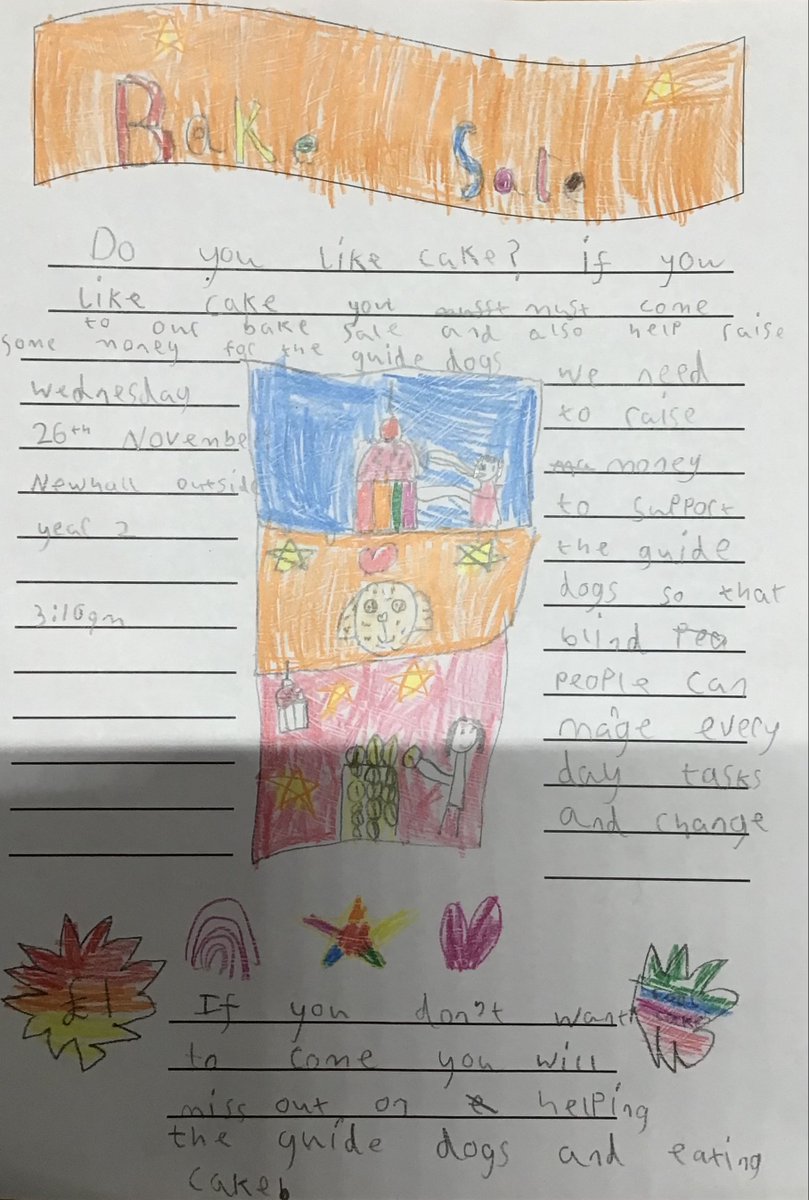 Bake Sale
Do you like cake? if you
like cake you must come
to our bake sale and also help raise
some money for the guide dogs
wednesday
26th November
Newhall outside
year 2
3:10pm
we need
to raise
money
to support
the guide
dogs so that
blind
people can
mage every
day tasks
and change
£1
If you don't want
to come you will
miss out on helping
the guide dogs and eating
cake